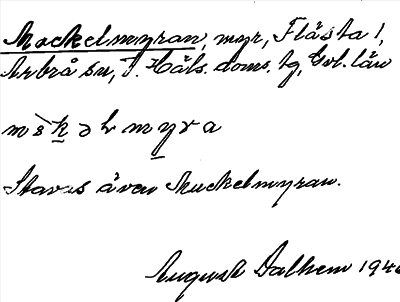 Mockelmyran, myr, Flästa 1,
Arbrå sn, V. Häls. doms. tg, Gvl. län
Stavas även Muckelmyran.
August Dalhem